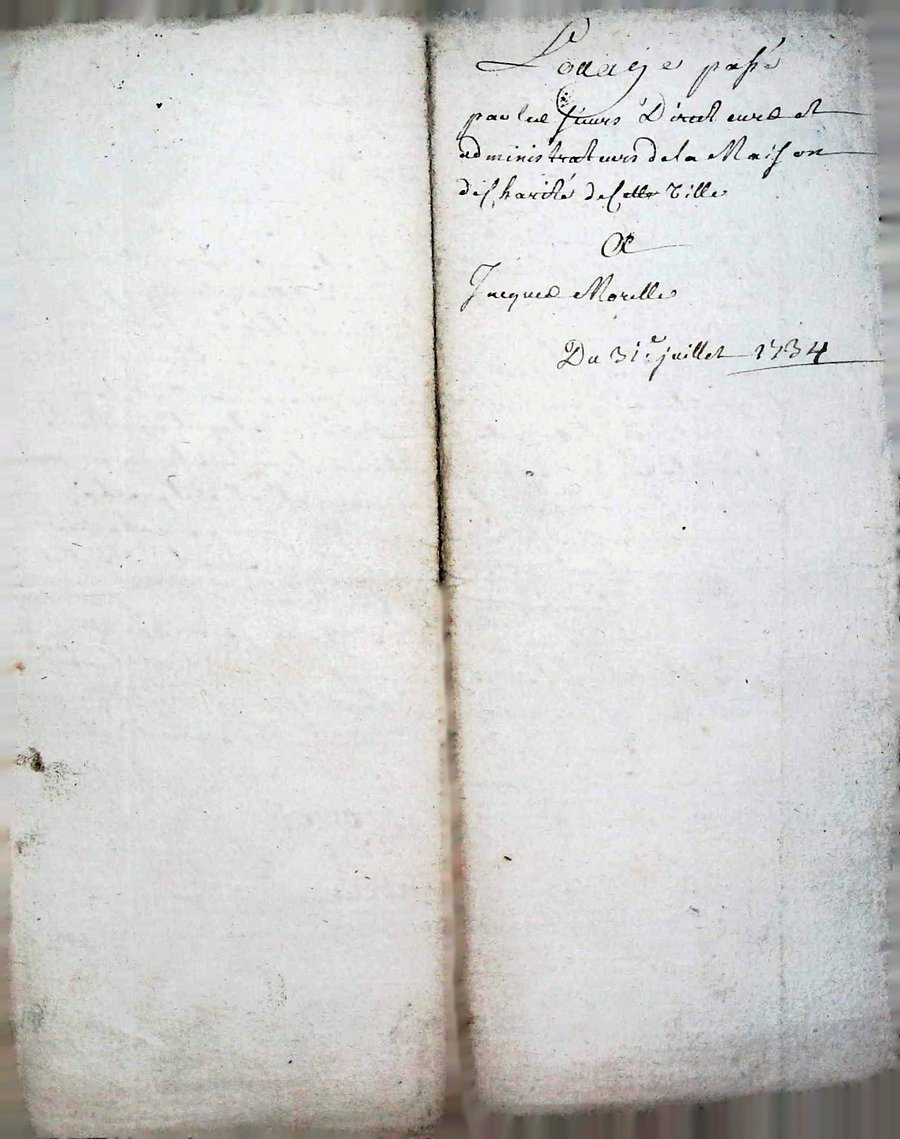 Louage passé
par les sieurs Directeurs et
administrateurs de la Maison
de Charité de Cette Ville
A
Jacques Morelle
Du 31.e juillet 1734